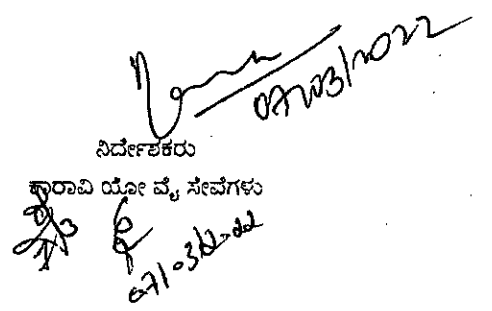 07/03/2022
ನಿರ್ದೇಶಕರು
ಕಾರಾವಿ ಯೋ ವೈ ಸೇವೆಗಳು
07/03/2022